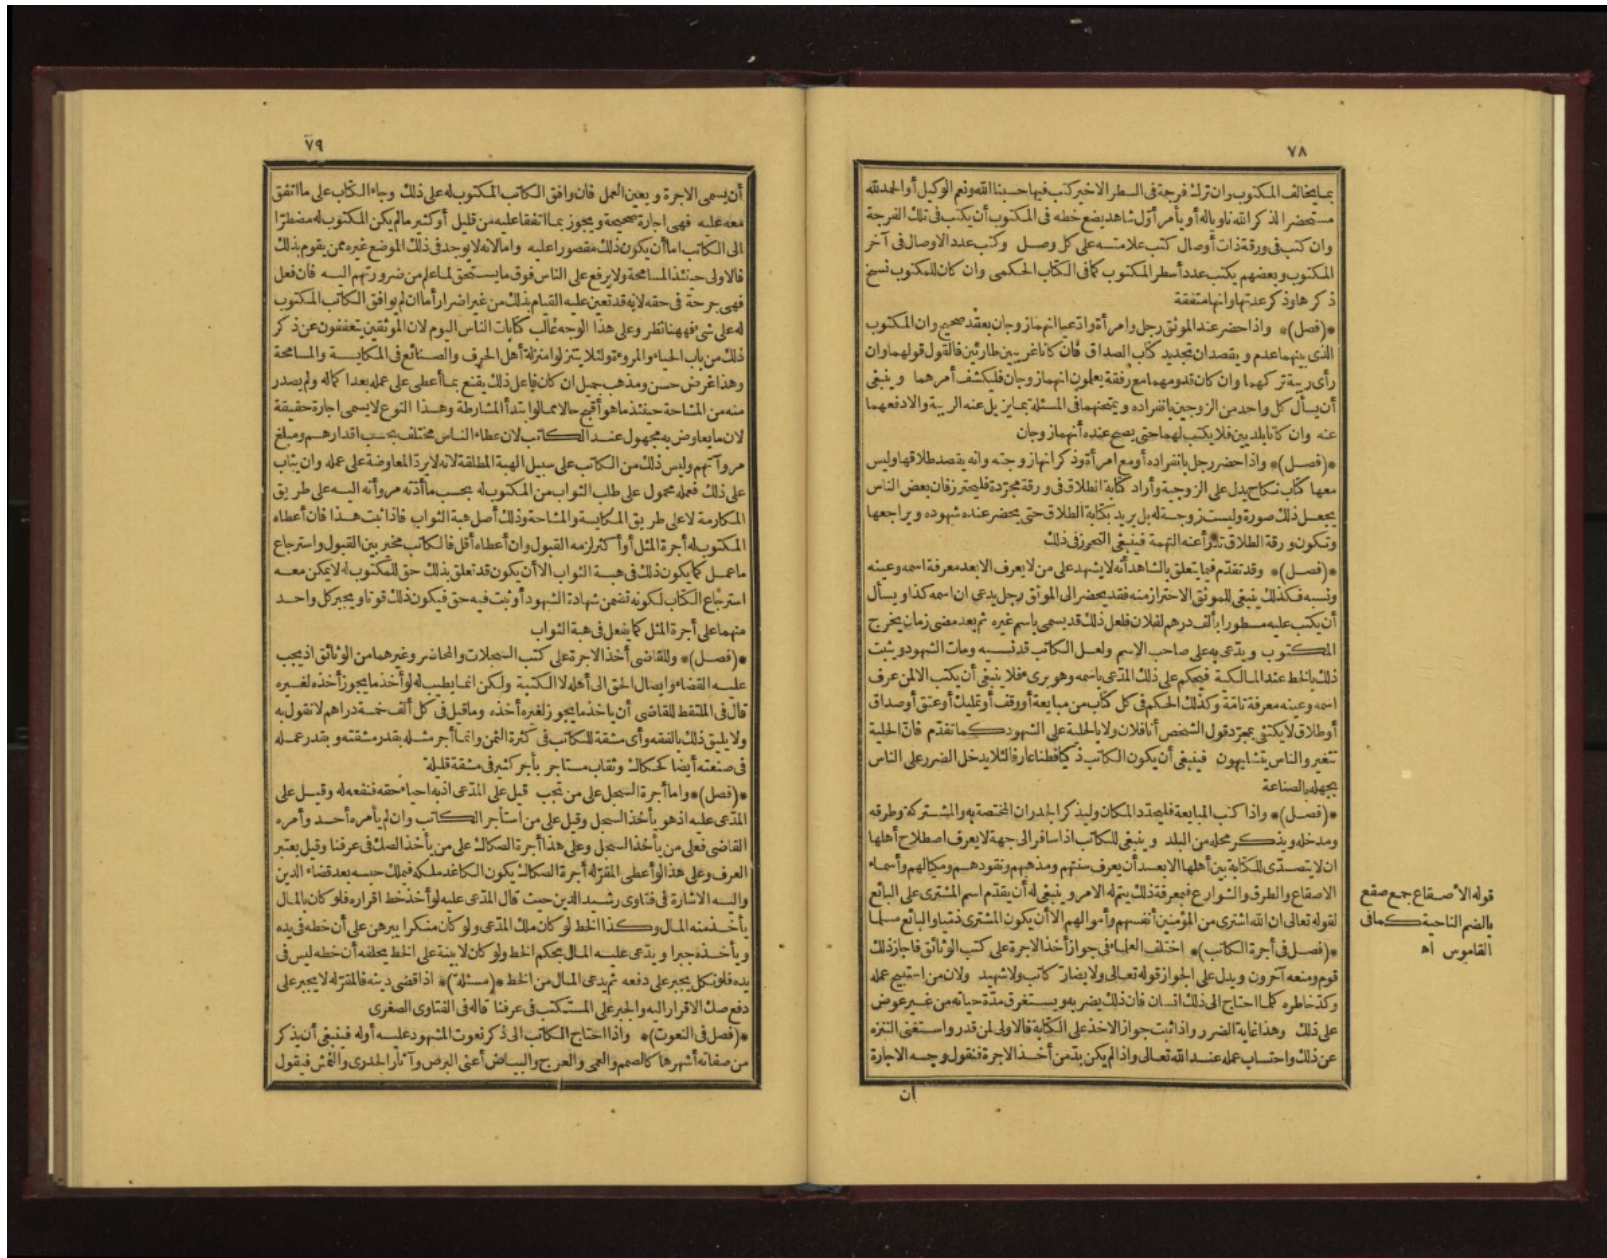 ٧٨
بما يخالف المكتوب وان ترك فرجة فى السطر الاخير كتب فيها حسبنا الله ونعم الوكيل أو الحمد لله
مستحضرا لذكر الله ناويا له أو يأمر أول شاهد يضع خطه فى المكتوب أن يكتب فى تلك الفرجة
وان كتب فى ورقة ذات أوصال كتب علامته على كل وصل وكتب عدد الاوصال فى آخر
المكتوب وبعضهم يكتب عدد أسطر المكتوب كما فى الكتاب الحكمى وان كان للمكتوب نسخ
ذكرها وذكر عدتها وانها متفقة
*(فصل)* واذا حضر عند الموثق رجل وامرأة وادعيا انهما زوجان بعقد صحيح وان المكتوب
الذى بينهما عدم ويقصدان تجديد كتاب الصداق فان كانا غريبين طارئين فالقول قولهما وان
رأى ريبة تركهما وان كان قدومهما مع رفقة يعلمون انهما زوجان فليكشف أمرهما وينبغى
أن يسأل كل واحد من الزوجين بانفراده ويمتحنهما فى المسئلة بما يزيل عنه الريبة والا دفعهما
عنه وان كانا بلديين فلا يكتب لهما حتى يصح عنده أنهما زوجان
*(فصل)* واذا حضر رجل بانفراده أو مع امرأة وذكر انها زوجته وانه يقصد طلاقها وليس
معها كتاب نكاح يدل على الزوجية وأراد كتابة الطلاق فى ورقة مجردة فليحترز فان بعض الناس
يجعل ذلك صورة وليست زوجة له بل يريد بكتابة الطلاق حتى يحضر عنده شهوده ويراجعها
وتكون ورقة الطلاق تدرأ عنه التهمة فينبغى التحرز فى ذلك
*(فصل)* وقد تقدم فيما يتعلق بالشاهد أنه لا يشهد على من لا يعرف الا بعد معرفة اسمه وعينه
ونسبه فكذلك ينبغى للموثق الاحتراز منه فقد يحضر الى الموثق رجل يدعى ان اسمه كذا ويسأل
أن يكتب عليه مسطورا بألف درهم لفلان فلعل ذلك قد يسمى باسم غيره ثم بعد مضى زمان يخرج
المكتوب ويدعى به على صاحب الاسم ولعل الكاتب قد نسيه ومات الشهود ويثبت
ذلك بالخط عند المالكية فيحكم على ذلك المدعى باسمه وهو برىء فلا ينبغى أن يكتب الا لمن عرف
اسمه وعينه معرفة تامة وكذلك الحكم فى كل كتاب من مبايعة أو وقف أو تمليك أو عتق أو صداق
أو طلاق لا يكتفى بمجرد قول الشخص أنا فلان ولا بالحلية على الشهود كما تقدم فان الحلية
تتغير والناس يتشابهون فينبغى أن يكون الكاتب ذكيا فطنا عارفا لئلا يدخل الضرر على الناس
بجهله بالصناعة
*(فصل)* واذا كتب المبايعة فليحدد المكان وليذكر الجدران المختصة به والمشتركة وطرقه
ومدخله ويذكر محله من البلد وينبغى للكاتب اذا سافر الى جهة لا يعرف اصطلاح أهلها
ان لا يتصدى للكتابة بين أهلها الا بعد أن يعرف سنتهم ومذهبهم ونقودهم ومكيالهم وأسماء
الاصقاع والطرق والشوارع فبمعرفة ذلك يتم له الامر وينبغى له أن يقدم اسم المشترى على البائع
لقوله تعالى ان الله اشترى من المؤمنين أنفسهم وأموالهم الا أن يكون المشترى ذميا والبائع مسلما
*(فصل فى أجرة الكاتب)* اختلف العلماء فى جواز أخذ الاجرة على كتب الوثائق فاجاز ذلك
قوم ومنعه آخرون ويدل على الجواز قوله تعالى ولا يضار كاتب ولا شهيد ولان من استبيح عمله
وكد خاطره كلما احتاج الى ذلك انسان فان ذلك يضر به ويستغرق مدة حياته من غير عوض
على ذلك وهذا غاية الضرر واذا ثبت جواز الاخذ على الكتابة فالاولى لمن قدر واستغنى التنزه
عن ذلك واحتساب عمله عند الله تعالى واذا لم يكن بد من أخذ الاجرة فنقول وجه الاجارة
ان
قوله الأصقاع جمع صقع
بالضم الناحية كما فى
القاموس اه
٧٩
أن يسمى الاجرة ويعين العمل فان وافق الكاتب المكتوب له على ذلك وجاء الكتاب على ما اتفق
معه عليه فهى اجارة صحيحة ويجوز بما اتفقا عليه من قليل أو كثير ما لم يكن المكتوب له مضطرا
الى الكاتب اما أن يكون ذلك مقصورا عليه واما لانه لا يوجد فى ذلك الموضع غيره ممن يقوم بذلك
فالاولى حينئذ المسامحة ولا يرفع على الناس فوق ما يستحق لما علم من ضرورتهم اليه فان فعل
فهى جرحة فى حقه لانه قد تعين عليه القيام بذلك من غير اضرار أما ان لم يوافق الكاتب المكتوب
له على شئ فههنا نظر وعلى هذا الوجه غالب كتابات الناس اليوم لان الموثقين يتعففون عن ذكر
ذلك من باب الحياء والمروءة ولئلا يتنزلوا منزلة أهل الحرف والصنائع فى المكايسة والمسامحة
وهذا غرض حسن ومذهب جميل ان كان فاعل ذلك يقنع بما أعطى على عمله بعد اكماله ولم يصدر
منه من المشاحة حينئذ ما هو أقبح حالا مما لو ابتدأ المشارطة وهذا النوع لا يسمى اجارة حقيقة
لان ما يعاوض به مجهول عند الكاتب لان عطاء الناس مختلف بحسب اقدارهم ومبلغ
مروآتهم وليس ذلك من الكاتب على سبيل الهبة المطلقة لانه لا يرد المعاوضة على عمله وان يثاب
على ذلك فعمله محمول على طلب الثواب من المكتوب له بحسب ما أدته مروأته اليه على طريق
المكارمة لا على طريق المكايسة والمشاحة وذلك أصل هبة الثواب فاذا ثبت هذا فان أعطاه
المكتوب له أجرة المثل أو أكثر لزمه القبول وان أعطاه أقل فالكاتب مخير بين القبول واسترجاع
ما عمل كما يكون ذلك فى هبة الثواب الا أن يكون قد تعلق بذلك حق للمكتوب له لا يمكن معه
استرجاع الكتاب لكونه تضمن شهادة الشهود أو ثبت فيه حق فيكون ذلك فوتا ويجبر كل واحد
منهما على أجرة المثل كما يفعل فى هبة الثواب
*(فصل)* وللقاضى أخذ الاجرة على كتب السجلات والمحاضر وغيرهما من الوثائق اذ يجب
عليه القضاء وايصال الحق الى أهله لا الكتبة ولكن انما يطيب له لو أخذ ما يجوز أخذه لغيره
قال فى الملتقط للقاضى أن ياخذ ما يجوز لغيره أخذه وما قيل فى كل ألف خمسة دراهم لا نقول به
ولا يليق ذلك بالفقه وأى مشقة للكاتب فى كثرة الثمن وانما أجر مثله بقدر مشقته وبقدر عمله
فى صنعته أيضا كحكاك وثقاب مستاجر بأجر كثير فى مشقة قليلة
*(فصل)* واما أجرة السجل على من تجب قيل على المدعى اذ به احياء حقه فنفعه له وقيل على
المدعى عليه اذ هو يأخذ السجل وقيل على من استأجر الكاتب وان لم يأمره أحد وأمره
القاضى فعلى من يأخذ السجل وعلى هذا أجرة الصكاك على من يأخذ الصك فى عرفنا وقيل يعتبر
العرف وعلى هذا لو أعطى المقر له أجرة الصكاك يكون الكاغد ملكه فيملك حبسه بعد قضاء الدين
واليه الاشارة فى فتاوى رشيد الدين حيث قال المدعى عليه لو أخذ خط اقراره فلو كان بالمال
يأخذ منه المال وكذا الخط لو كان ملك المدعى ولو كان منكرا يبرهن على أن خطه فى يده
ويأخذه جبرا ويدعى عليه المال بحكم الخط ولو كان لا بينة على الخط يحلفه أن خطه ليس فى
يده فلو نكل يجبر على دفعه ثم يدعى المال من الخط *(مسئلة)* اذا قضى دينه فالمقر له لا يجبر على
دفع صك الاقرار اليه والجبر على المستكتب فى عرفنا قاله فى الفتاوى الصغرى
*(فصل فى النعوت)* واذا احتاج الكاتب الى ذكر نعوت المشهود عليه أو له فينبغى أن يذكر
من صفاته أشهرها كالصمم والعمى والعرج والبياض أعنى البرص وآثار الجدرى والنمش فيقول